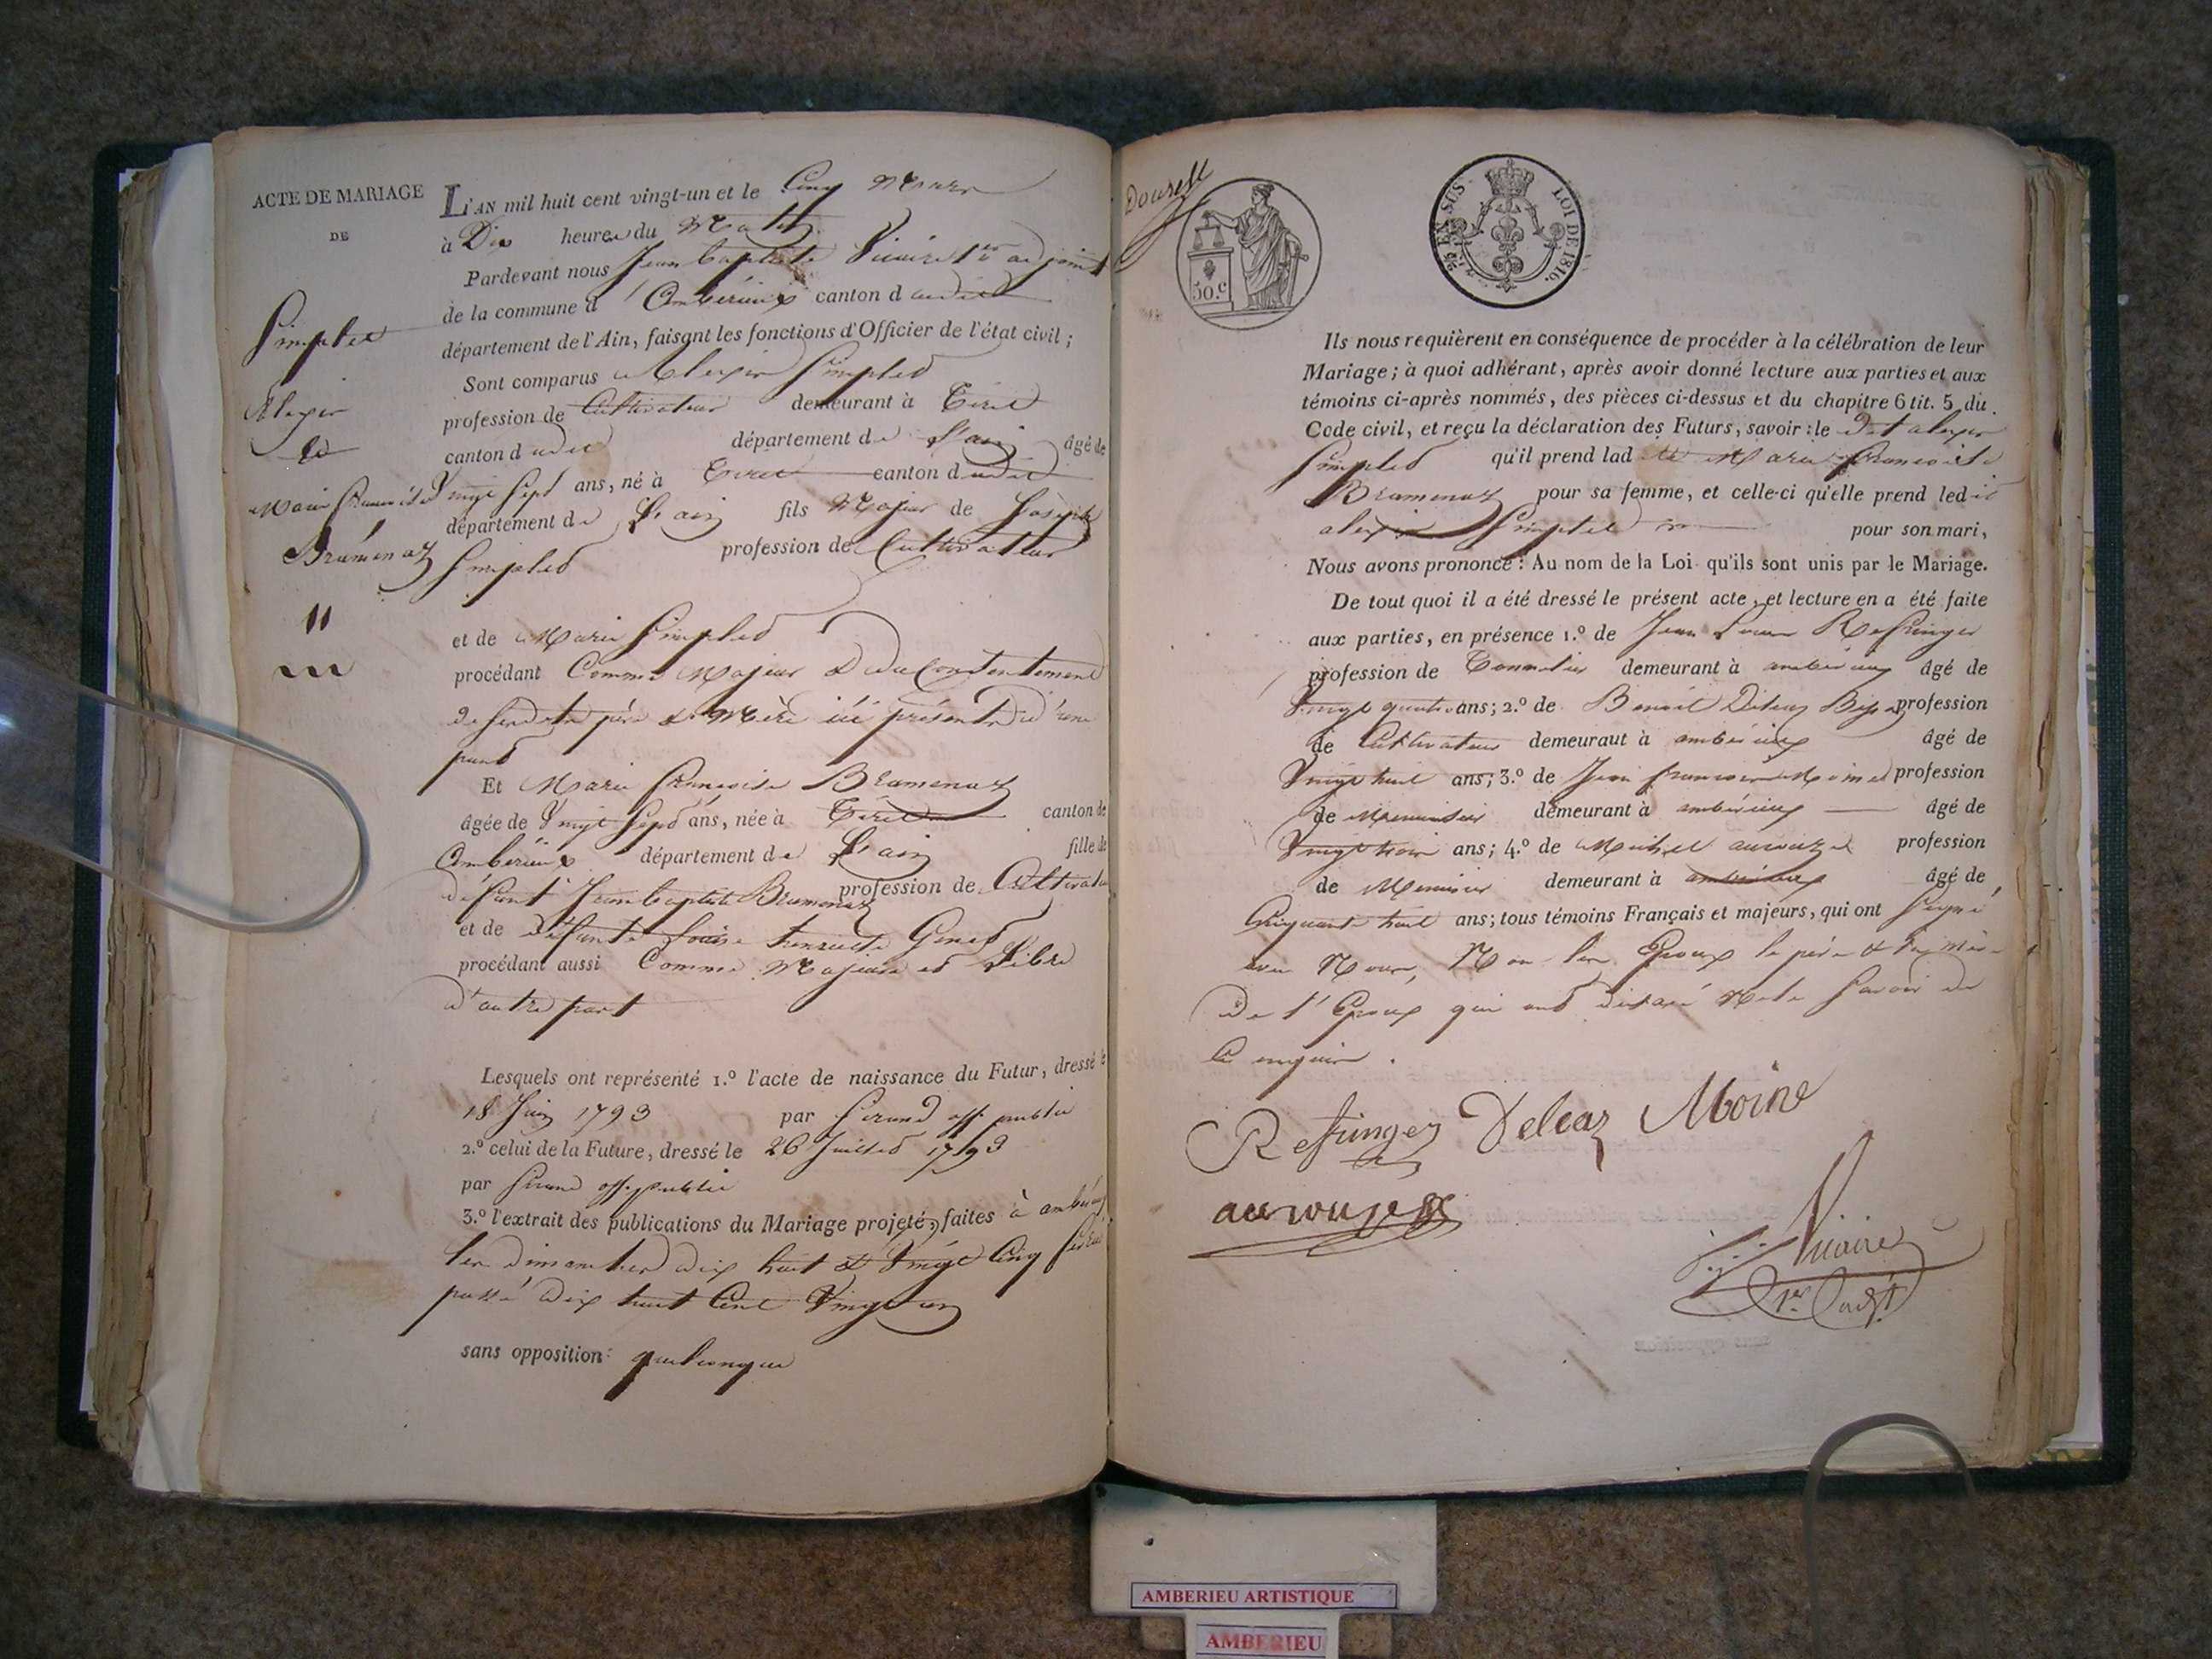 ACTE DE MARIAGE
DE
Simplet
Alexis
et
Marie Françoise
Bramenaz
L'AN mil huit cent vingt-un et le Cinq Mars
à Dix heures du Matin
Pardevant nous Jean Baptiste Vicaire 1er adjoint
de la commune d'Ambérieux canton dudit
département de l'Ain, faisant les fonctions d'Officier de l'état civil;
Sont comparus Alexis Simplet
profession de Cultivateur demeurant à Tiret
canton dudit département de L'ain âgé de
Vingt Sept ans, né à Tiret canton dudit
département de L'ain fils Majeur de Joseph
Simplet profession de Cultivateur
et de Marie Simplet
procédant Comme Majeur & du Consentement
de père & Mère ici présents d'une
part
Et Marie Françoise Bramenaz
âgée de Vingt Sept ans, née à Tiret canton de
Ambérieux département de L'ain fille de
défunt Jean Baptiste Bramenaz profession de Cultivateur
et de défunte Louise henriette Genet
procédant aussi Comme Majeure et Libre
d'autre part
Lesquels ont représenté 1.º l'acte de naissance du Futur, dressé le
18 Juin 1793 par Girand off. public
2.º celui de la Future, dressé le 26 Juillet 1793
par Girand off. public
3.º l'extrait des publications du Mariage projeté, faites à ambérieux
les dimanches dix huit & Vingt Cinq février
passé dix huit Cent Vingt un
sans opposition quelconque
50.C
EN SUS. LOI DE 1816.
Ils nous requièrent en conséquence de procéder à la célébration de leur
Mariage; à quoi adhérant, après avoir donné lecture aux parties et aux
témoins ci-après nommés, des pièces ci-dessus et du chapitre 6 tit. 5 du
Code civil, et reçu la déclaration des Futurs, savoir: le dit alexis
Simplet qu'il prend ladite Marie Françoise
Bramenaz pour sa femme, et celle-ci qu'elle prend ledit
alexis Simplet pour son mari,
Nous avons prononcé: Au nom de la Loi qu'ils sont unis par le Mariage.
De tout quoi il a été dressé le présent acte, et lecture en a été faite
aux parties, en présence 1.º de Jean Louis Refringer
profession de Tonnelier demeurant à ambérieux âgé de
Vingt quatre ans; 2.º de Benoit Deleaz profession
de Cultivateur demeuraut à ambérieux âgé de
Vingt huit ans; 3.º de Jean françois Moine profession
de Menuisier demeurant à ambérieux âgé de
Vingt trois ans; 4.º de Michel profession
de Menuisier demeurant à ambérieux âgé de
Cinquante huit ans; tous témoins Français et majeurs, qui ont Signé
avec Nous, Non les Epoux le père & la mère
de l'Epoux qui ont déclaré Ne le Savoir de
Ce enquis.
Refringer Deleaz Moine
Vicaire
1er adjt
AMBERIEU ARTISTIQUE
AMBERIEU